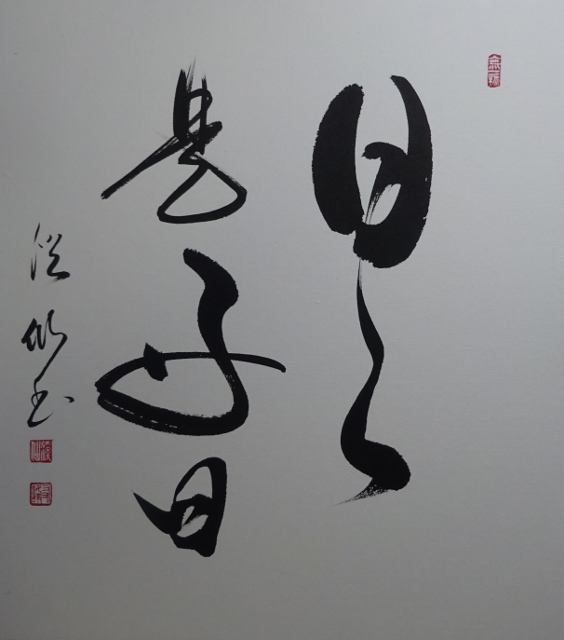 日々
是好日